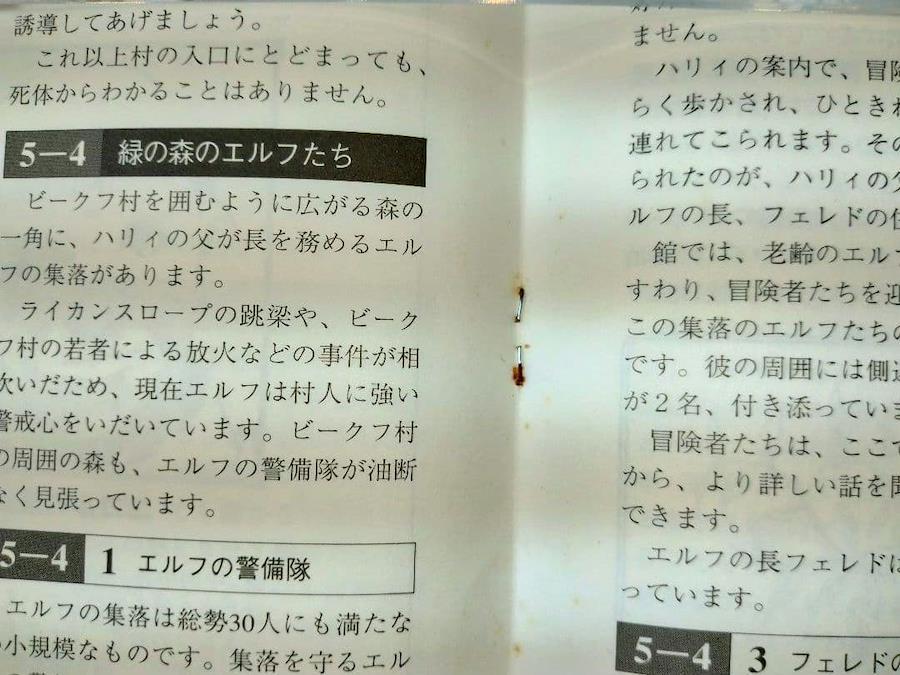 誘導してあげましょう。
これ以上村の入口にとどまっても、
死体からわかることはありません。
5－4 緑の森のエルフたち
ビークフ村を囲むように広がる森の
一角に、ハリィの父が長を務めるエル
フの集落があります。
ライカンスロープの跳梁や、ビーク
フ村の若者による放火などの事件が相
次いだため、現在エルフは村人に強い
警戒心をいだいています。ビークフ村
の周囲の森も、エルフの警備隊が油断
なく見張っています。
5－4 1 エルフの警備隊
エルフの集落は総勢30人にも満たな
小規模なものです。集落を守るエル
ません。
ハリィの案内で、冒険
らく歩かされ、ひときわ
連れてこられます。その
られたのが、ハリィの父
ルフの長、フェレドの住
館では、老齢のエルフ
すわり、冒険者たちを迎
この集落のエルフたちの
です。彼の周囲には側近
が2名、付き添っていま
冒険者たちは、ここで
から、より詳しい話を聞
できます。
エルフの長フェレドは
っています。
5－4 3 フェレドの